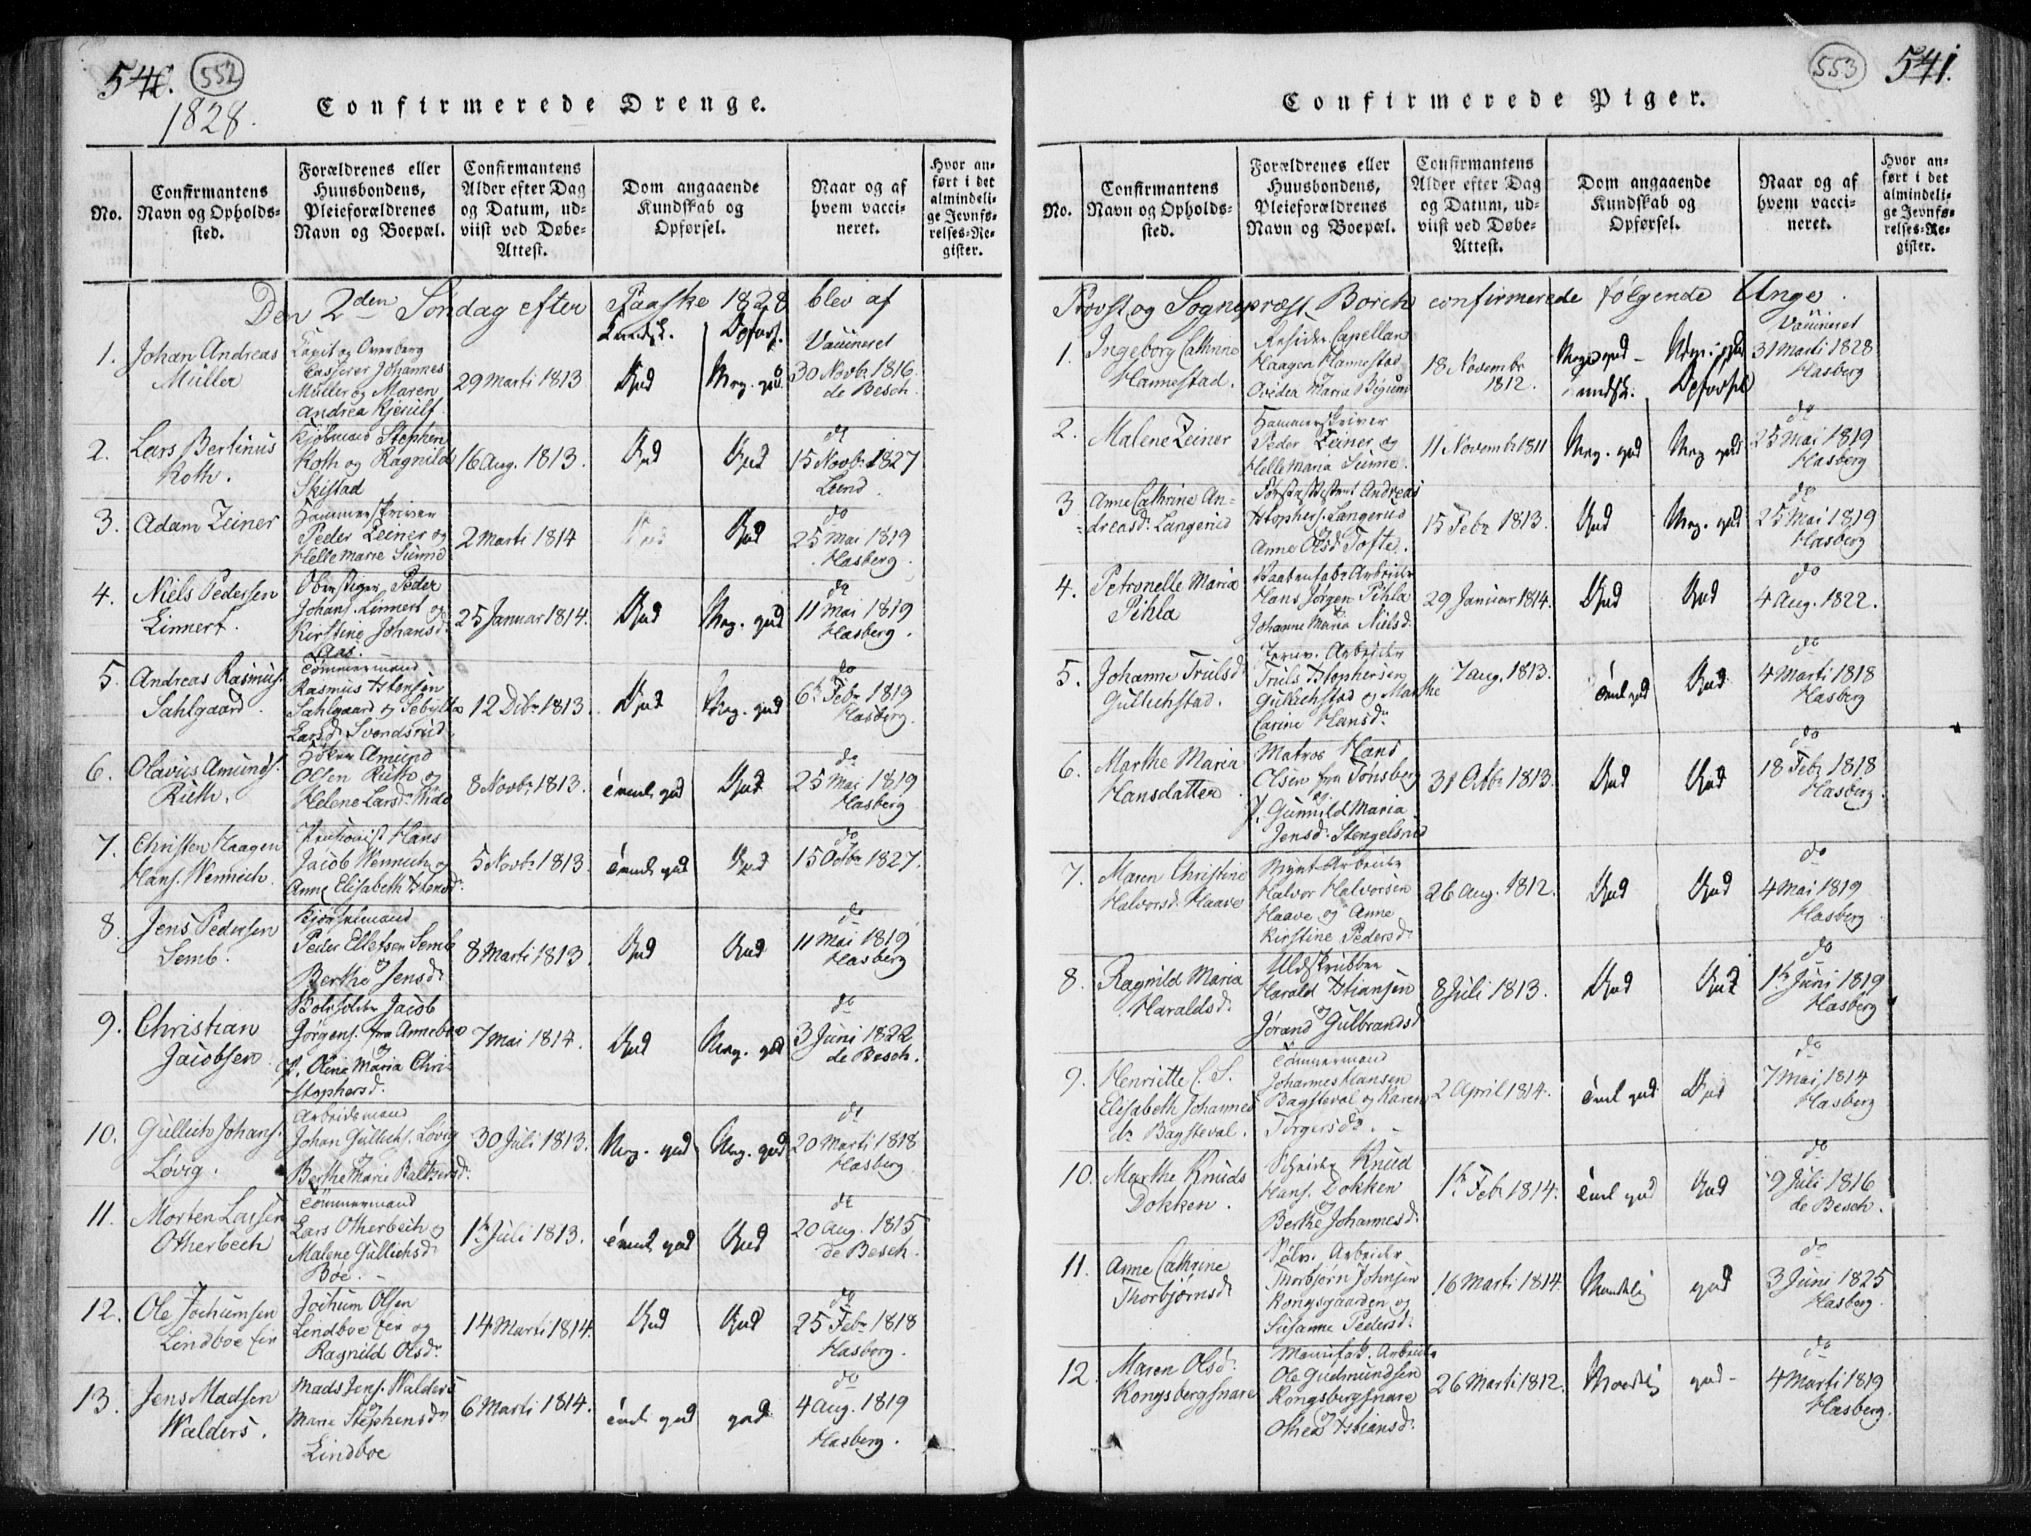 540. 552
1828.
Confirmerede Drenge.
No.
Confirmantens
Navn og Opholds-
sted.
Forældrenes eller
Huusbondens,
Pleieforældrenes
Navn og Boepæl.
Confirmantens
Alder efter Dag
og Datum, ud-
viist ved Døbe-
Attest.
Dom angaaende
Kundskab og
Opførsel.
Naar og af
hvem vacci-
neret.
Hvor an-
ført i det
almindeli-
ge Jevnfø-
relses-Re-
gister.
Den 2den Søndag efter Paaske 1828 blev af
1.
Johan Andreas
Müller
Casserer Johannes
Müller og Maren
Andrea Kjerulf
29 Marti 1813
Gud
Meg. gud
Vaccineret
30 Novbr 1816
de Besch.
2.
Lars Bertinus
Roth.
Kjøbmand Stephen
Roth og Ragnild
Skistad
16 Aug. 1813.
Gud
Gud
do
15 Novbr 1827
Lund.
3.
Adam Zeiner
Hammerskriver
Peder Zeiner og
Helle Marie Sünne
2 Marti 1814
Gud
do
25 Mai 1819
Hasberg.
4.
Niels Pedersen
Linnert.
Oberstiger Peder
Johans. Linnert og
Kirstine Johansd.
Laas.
25 Januar 1814.
Gud
Meg. gud
do
11 Mai 1819
Hasberg.
5.
Andreas Rasmus.
Sahlgaard.
Tømmermand
Rasmus Hansen
Sahlgaard og Sebylla
Larsd. Svendsrud
12 Dcbr 1813.
Gud
Meg. gud
do
6te Febr 1819
Hasberg.
6.
Olavus Amunds.
Ruth.
Høker Amund
Olsen Ruth og
Helene Larsdr
8 Novbr 1813.
Gud
do
25 Mai 1819
Hasberg
7.
Christen Haagen
Hans. Wennech.
Hans
Jacob Wennech og
Anne Elisabeth
5 Novbr 1813.
Gud
do
15 Octbr 1827.
8.
Jens Pedersen
Semb.
Kjørselmand
Peder Ellefsen Semb
og
Berthe Jensdr
8 Marti 1813.
Gud
Gud
do
11 Mai 1819
Hasberg
9.
Christian
Jacobsen.
Jacob
Jørgens. fra Annebro
og
p. Oline Maria Chri-
stophersd.
7 Mai 1814.
Gud
Meg. gud
do
3 Juni 1822
de Besch.
10.
Gullich Johans.
Løvig.
Arbeidsmand
Johan Gullichs. Løvig
og
Berthe Marie Balthersd.
30 Juli 1813.
Meg. gud
Meg. gud
do
20 Marti 1818
Hasberg.
11.
Morten Larsen
Otherbech
Tømmermand
Lars Otherbech og
Malene Gullichsd.
Bøe.
1te Juli 1813.
Gud
do
20 Aug. 1815
de Besch.
12.
Ole Jochumsen
Lindboe Eir
Jochum Olsen
Lindboe Eir og
Ragnild Olsdr
14 Marti 1814.
Gud
Gud
do
25 Febr 1818
Hasberg.
13.
Jens Madsen
Walders.
Mads Jens. Walders
og
Marie Stephensdr
Lindboe
6 Marti 1814.
gud
do
4 Aug. 1819
Hasberg.
553 541.
Confirmerede Piger.
No.
Confirmantens
Navn og Opholds-
sted.
Forældrenes eller
Huusbondens,
Pleieforældrenes
Navn og Boepæl.
Confirmantens
Alder efter Dag
og Datum, ud-
viist ved Døbe-
Attest.
Dom angaaende
Kundskab og
Opførsel.
Naar og af
hvem vacci-
neret.
Hvor an-
ført i det
almindeli-
ge Jevnfø-
relses-Re-
gister.
Provst og Sognepræst Borch confirmerede følgende Unge.
1.
Ingeborg Cathrine
Hannestad.
Resider. Capellan
Haagen Hannestad
og
Ovidea Maria
18 Novembr
1812.
Meget gud
Kundsk.
Opførsel
Vaccineret
31 Marti 1828
Hasberg
2.
Malene Zeiner
Hammerskriver
Peder Zeiner og
Helle Maria Sünne.
11 Novembr 1811
Meg. gud
Meg gud
do
25 Mai 1819
Hasberg
3
Anne Cathrine An-
dreasdr Langerud
Andreas
Langerud
Anne Olsd. Tofte.
15 Febr 1813.
Gud
Meg. gud
do
25 Mai 1819
Hasberg
4.
Petronelle Maria
Pihla
Vaabenfabr Arbeider
Hans Jørgen Pihla
og
Johanne Maria Nielsd.
29 Januar 1814.
Gud
Gud
do
4 Aug. 1822.
5.
Johanne Trulsd.
Gullichstad.
Arbeider
Truls
Gullichstad og Marthe
Carine Hansdr
7 aug. 1813.
Gud
do
4 Marti 1818
Hasberg
6.
Marthe Maria
Hansdatter
Matros Hans
Olsen fra Tønsberg
og
p. Gunnild Maria
Jensd. Stengelsrud
31 Octbr 1813.
Gud
Gud
do
18 Febr 1818
Hasberg.
7.
Maren Christine
Halvorsd. Haave
Mynt-Arbeider
Halvor Halvorsen
Haave og Anne
Kirstine Pedersd.
26 Aug. 1812.
Gud
Gud
do
4 Mai 1819
Hasberg
8.
Ragnild Maria
Haraldsd.
Harald
og
Jørand Gulbrandsd.
8 Juli 1813.
Gud
Gud
do
1te Juni 1819
Hasberg
9.
Henriette C. S.
Elisabeth Johannes
dr Bagsteval.
Tømmermand
Johannes Hansen
Bagsteval og Karen
Torgersdr.
2 April 1814.
Gud
do
7 Mai 1814
Hasberg
10.
Marthe Knuds
Dokken.
Knud
Hans. Dokken
og
Berthe Johannesd.
1te Febr 1814.
Gud
do
9 Juli 1816
de Besch.
11.
Anne Cathrine
Thorbjørnsd.
Sølv. Arbeider
Thorbjørn Johnsen
Kongsgaarden og
Susanne Pedersd.
16 Marti 1814.
gud
do
3 Juni 1825
Hasberg.
12.
Maren Olsd.
Kongsbergsnare
Manufak. Arbeider
Ole Gudmundsen
Kongsbergsnare
og
Othea
26 Marti 1812.
gud
do
4 Marti 1819
Hasberg.